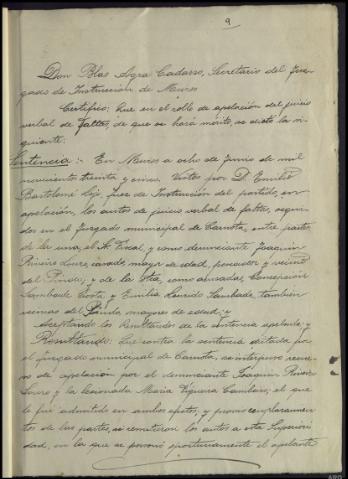 9
Don Blas Agra Cadarso, Secretario del Juz-
gado de Instruccion de Muros
Certifico: Que en el rollo de apelación del juicio
verbal de faltas, de que se hará mérito, se dictó la si-
guiente:
Sentencia:- En Muros a ocho de Junio de mil
novecientos treinta y cinco. Visto por D. Emilio
Bartolomé Juez de Instrucción del partido, en
apelación, los autos de juicio verbal de faltas, segui-
dos en el Juzgado municipal de Carnota, entre partes
de la una, el Sr. Fiscal, y como denunciante Joaquin
Piñeiro Lure, casado, mayor de edad, y vecino
del Pindo, y de la otra, como acusadas, Concepción
Lambade Costa y Emilia Lourido Lambade, tambien
vecinas del Pindo, mayores de edad; y
Aceptando los Resultandos de la sentencia apelada; y
Resultando: Que contra la sentencia dictada por
el Juzgado municipal de Carnota, se interpuso recur-
so de apelación por el denunciante Joaquin Piñeiro
Lure y la lesionada Maria Figuera el que
le fué admitido en ambos efectos, y previo emplazamien-
to de las partes, se remitieron los autos a esta Superiori-
dad, en la que se personó oportunamente el apelante